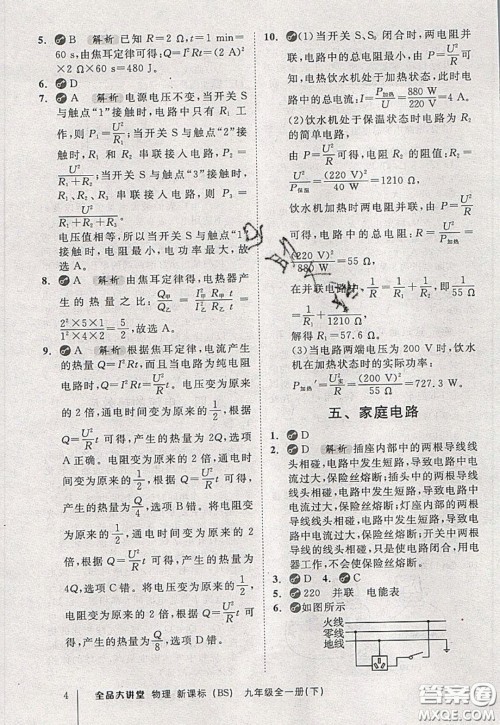 5. B 解析 已知 R=2 Ω,t=1 min=
60 s,由焦耳定律可得:Q=I²Rt=(2 A)²
×2 Ω×60 s=480 J。
6. D
7. A 解析 电源电压不变,当开关 S
与触点“1”接触时,电路中只有 R₁ 工
作,则 P₁=U²/R₁;当开关 S 与触点“2”接
触时,R₁ 和 R₂ 串联接入电路,则
P₂=U²/(R₁+R₂);当开关 S 与触点“3”接触
时,三个电阻串联接入电路,则 P₃=
U²/(R₁+R₂+R₃)。
电压值相等,所以当开关 S 与触点“1”接
触时,电阻最小,电功率最大,故
选 A。
8. A 解析 由焦耳定律得,电热器产
生的热量之比:Q甲/Q乙=I²甲R甲t/I²乙R乙t=
2²×5×1/1²×4×5=1/1,故选 A。
9. A 解析 根据焦耳定律,电流产生
的热量 Q=I²Rt 而且当电路为纯电阻
电路时,Q=I²Rt=U²/R t。将通电时间变
为原来的1/2,根据 Q=U²/R t 可得,产生
的热量为Q/2,A 正确。电阻变为原来的
1/2,根据 Q=U²/R t 可得,产生的热量为
2Q,选项 B 错。将电压变为原来的1/2,
根据 Q=U²/R t 可得,产生的热量为Q/4,
选项 C 错。将电阻变为原来的1/2,
电压变为原来的1/2,根据 Q=U²/R t 可
得,产生的热量为Q/2,选项 D 错。
10. (1)当开关 S、S₀ 闭合时,两电阻并
联,电路中的总电阻最小,根据 P=U²/R
可得,饮水机处于加热状态,此时电路
中的总电流:I=P加热/U=880 W/220 V=4 A。
(2)饮水机处于保温状态时电路为 R₂
的简单电路,
由 P=U²/R 可得,R₂ 的阻值:R₂=
U²/P保温=(220 V)²/40 W=1210 Ω,
饮水机加热时两电阻并联,由 P=U²/R
可得,电路中的总电阻:R=U²/P加热=
(220 V)²/880 W=55 Ω,
在并联电路中,1/R=1/R₁+1/R₂,即1/55 Ω
=1/R₁+1/1210 Ω,
解得:R₁=57.6 Ω。
(3)当电路两端电压为 200 V 时,饮水
机在加热状态时的实际功率:
P加热′=U′²/R=(200 V)²/55 Ω=727.3 W。
五、家庭电路
1. D
2. D 解析 插座内部中的两根导线线
头相碰,电路中发生短路,导致电路中电
流过大,保险丝熔断;插头中的两根导线
线头相碰,电路中发生短路,导致电路中
电流过大,保险丝熔断;灯座内部中的两
根导线线头相碰,电路中发生短路,导致
电路中电流过大,保险丝熔断;开关中的
两个线头相碰,电路中没有发生短路,用
电器不受开关控制,不会使保险丝熔断。
3. D 4. C
5. 220 并联 电能表
6. 如图所示
火线
零线
地线
4 全品大讲堂 物理 新课标 (BS) 九年级全一册(下)